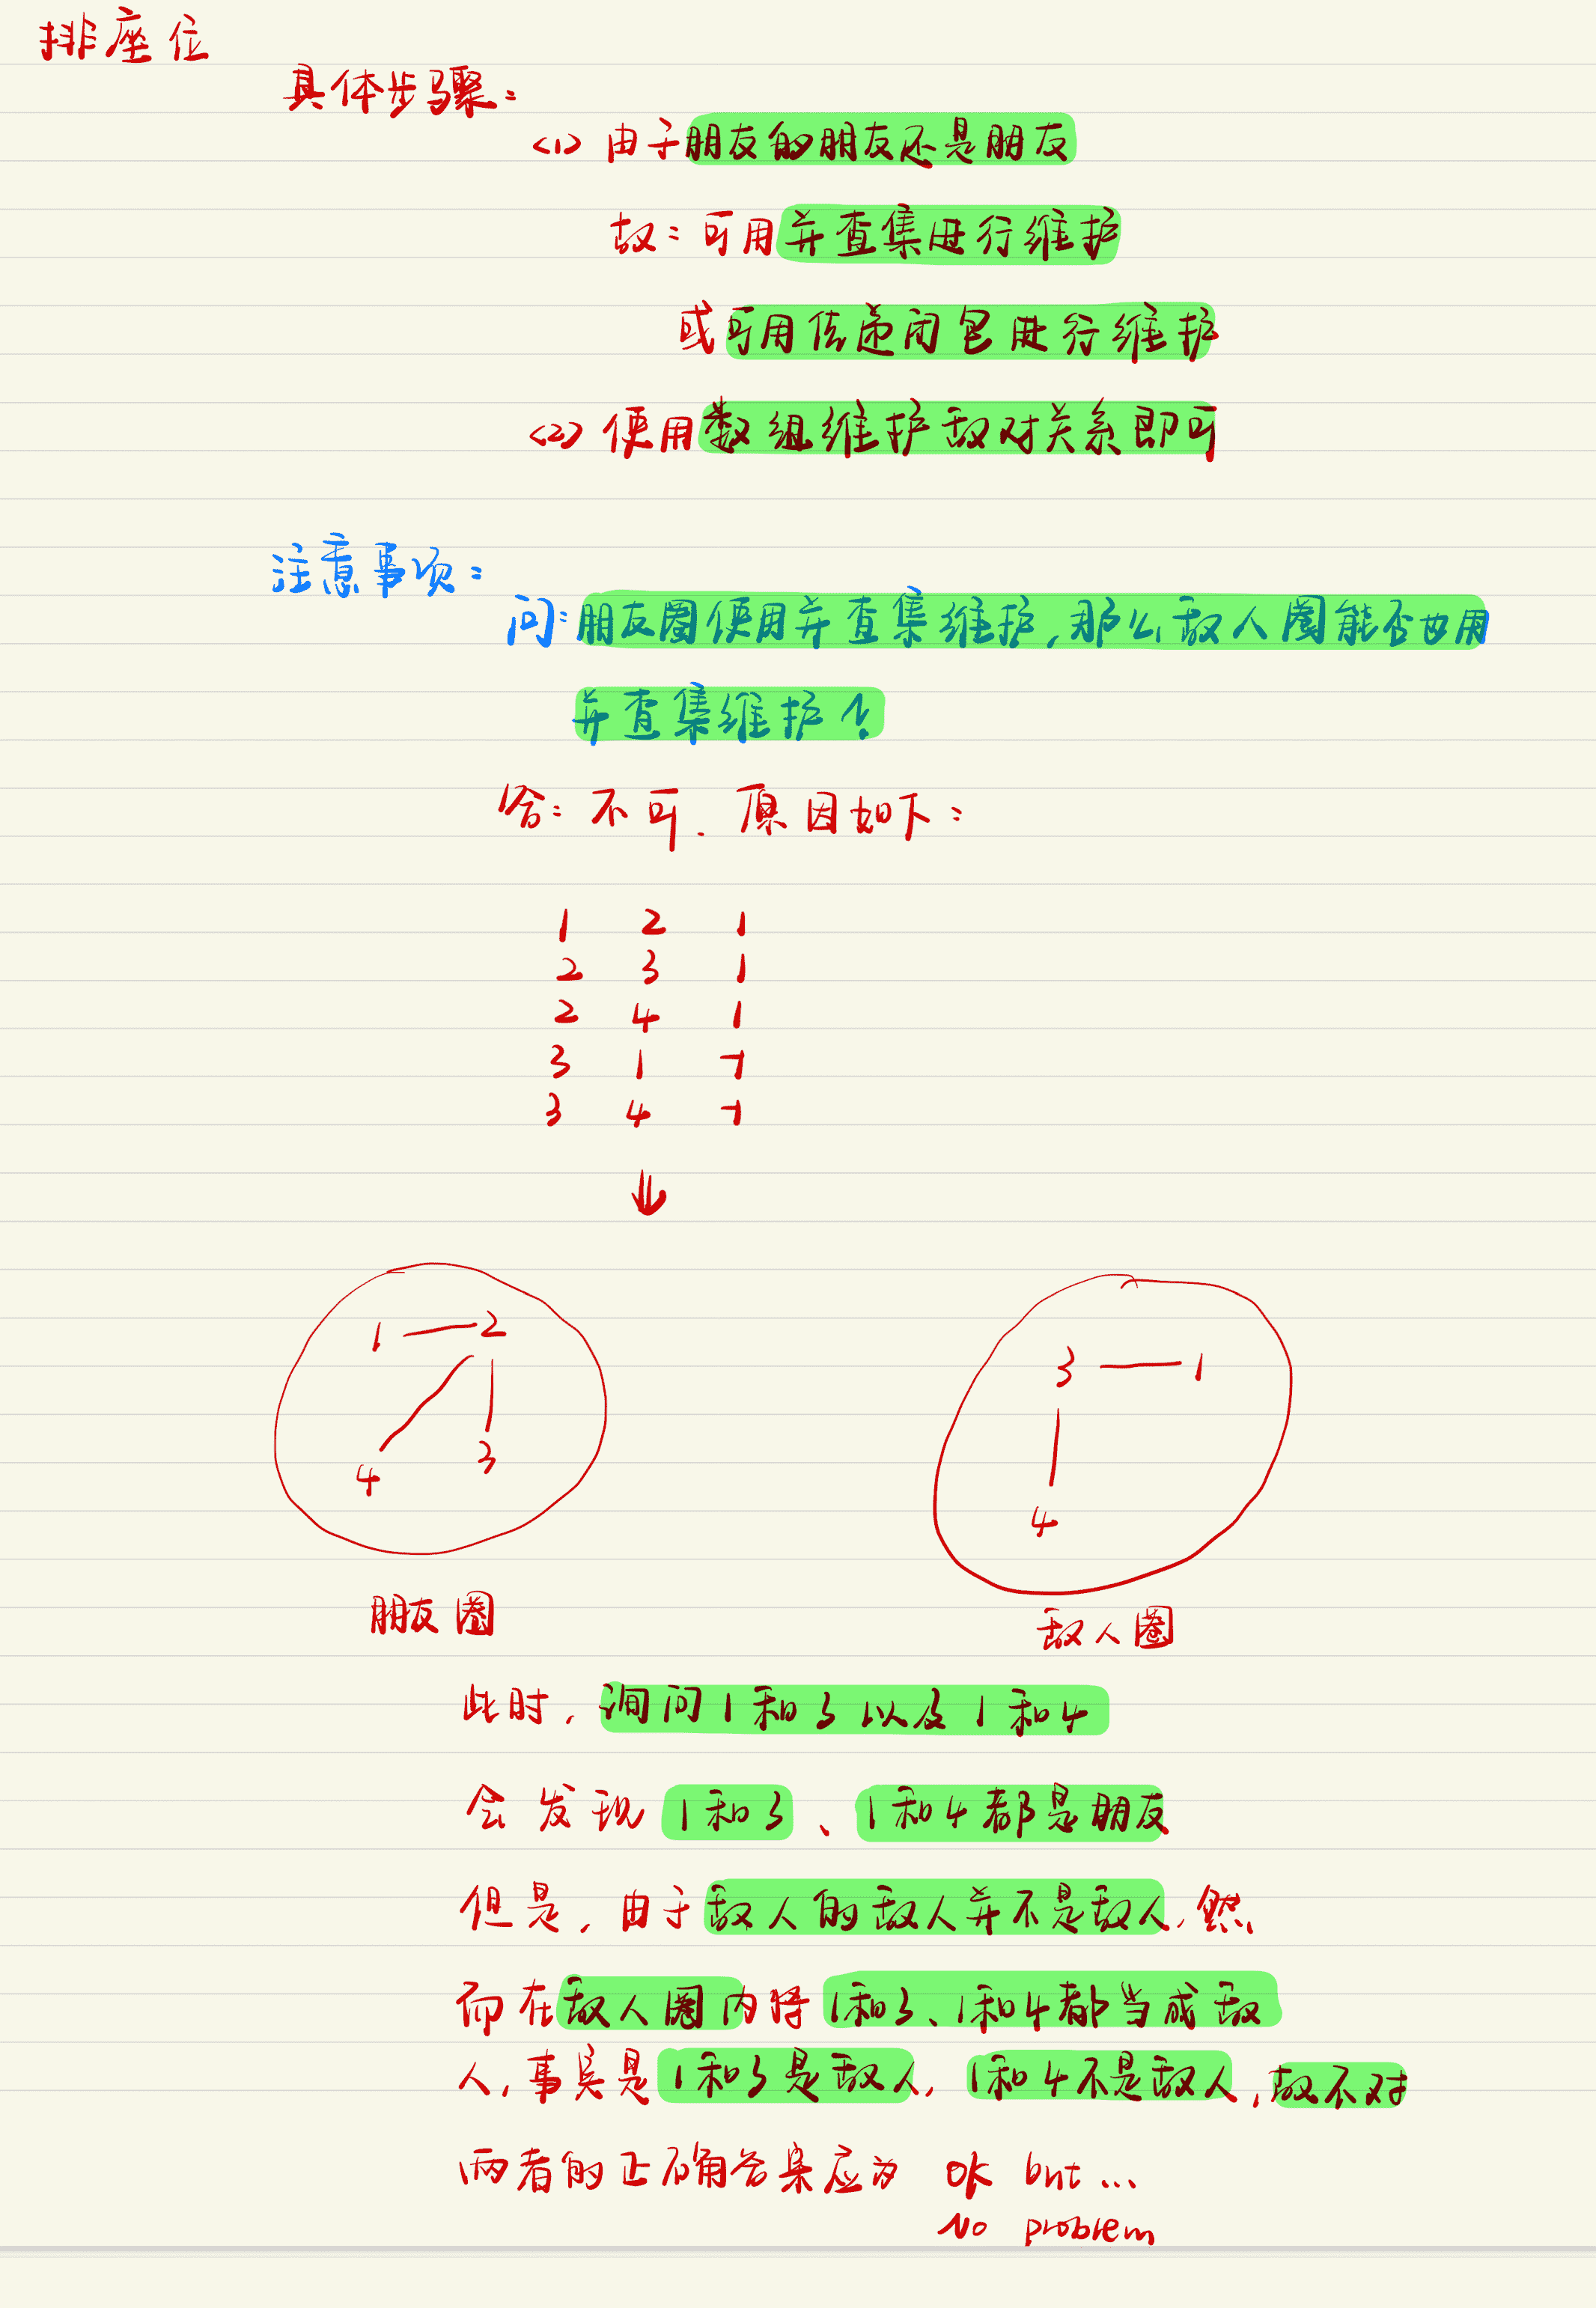 排座位
具体步骤:
<1> 由于朋友的朋友还是朋友
故:可用并查集进行维护
或可用传递闭包进行维护
<2> 使用数组维护敌对关系即可
注意事项:
问:朋友圈使用并查集维护,那么敌人圈能否也用
并查集维护?
答:不可.原因如下:
1 2 1
2 3 1
2 4 1
3 1 -1
3 4 -1
1 2
4 3
3 1
4
朋友圈
敌人圈
此时,询问1和3以及1和4
会发现1和3、1和4都是朋友
但是,由于敌人的敌人并不是敌人,然
而在敌人圈内将1和3、1和4都当成敌
人,事实是1和3是敌人,1和4不是敌人,故不对
两者的正确答案应为 OK but...
No problem